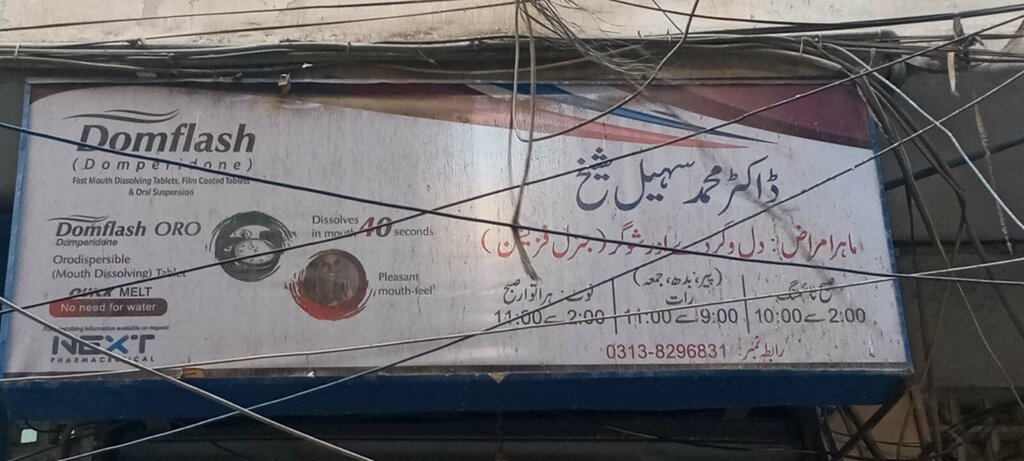 Domflash
(Domperidone)
Fast Mouth Dissolving Tablets, Film Coated Tablets
& Oral Suspension
Domflash ORO
Domperidone
Orodispersible
(Mouth Dissolving) Tablet
QUICK MELT
No need for water
prescribing information available on request
NEXT
PHARMACEUTICAL
Dissolves
in mouth 40 seconds
Pleasant
mouth-feel¹
ڈاکٹر محمد سہیل شیخ
ماہر امراض: دل و گردے اور شوگر (جنرل فزیشن)
صبح ٹائمنگ
2:00 سے 10:00
(پیر، بدھ، جمعہ)
رات
9:00 سے 11:00
نوٹ: ہر اتوار صبح
2:00 سے 11:00
رابطہ نمبر: 0313-8296831